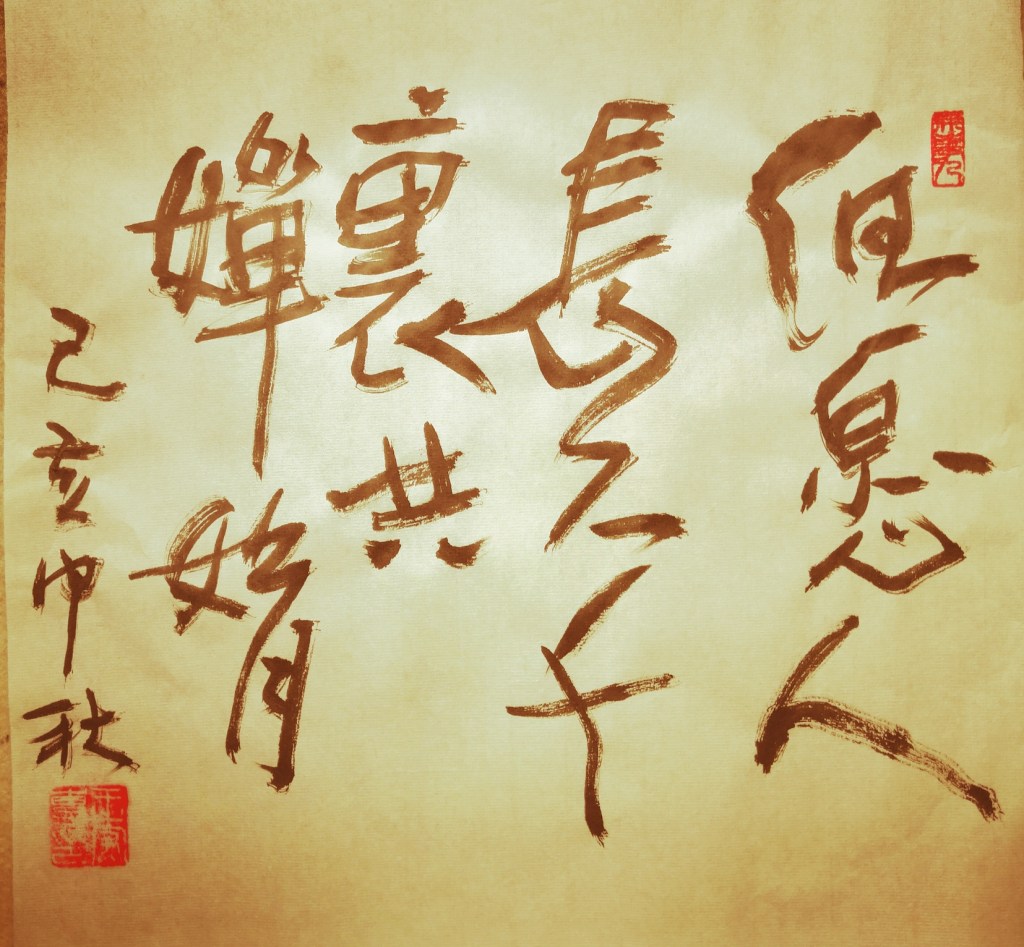 但愿人
長久千
裏共
嬋娟
己亥中秋